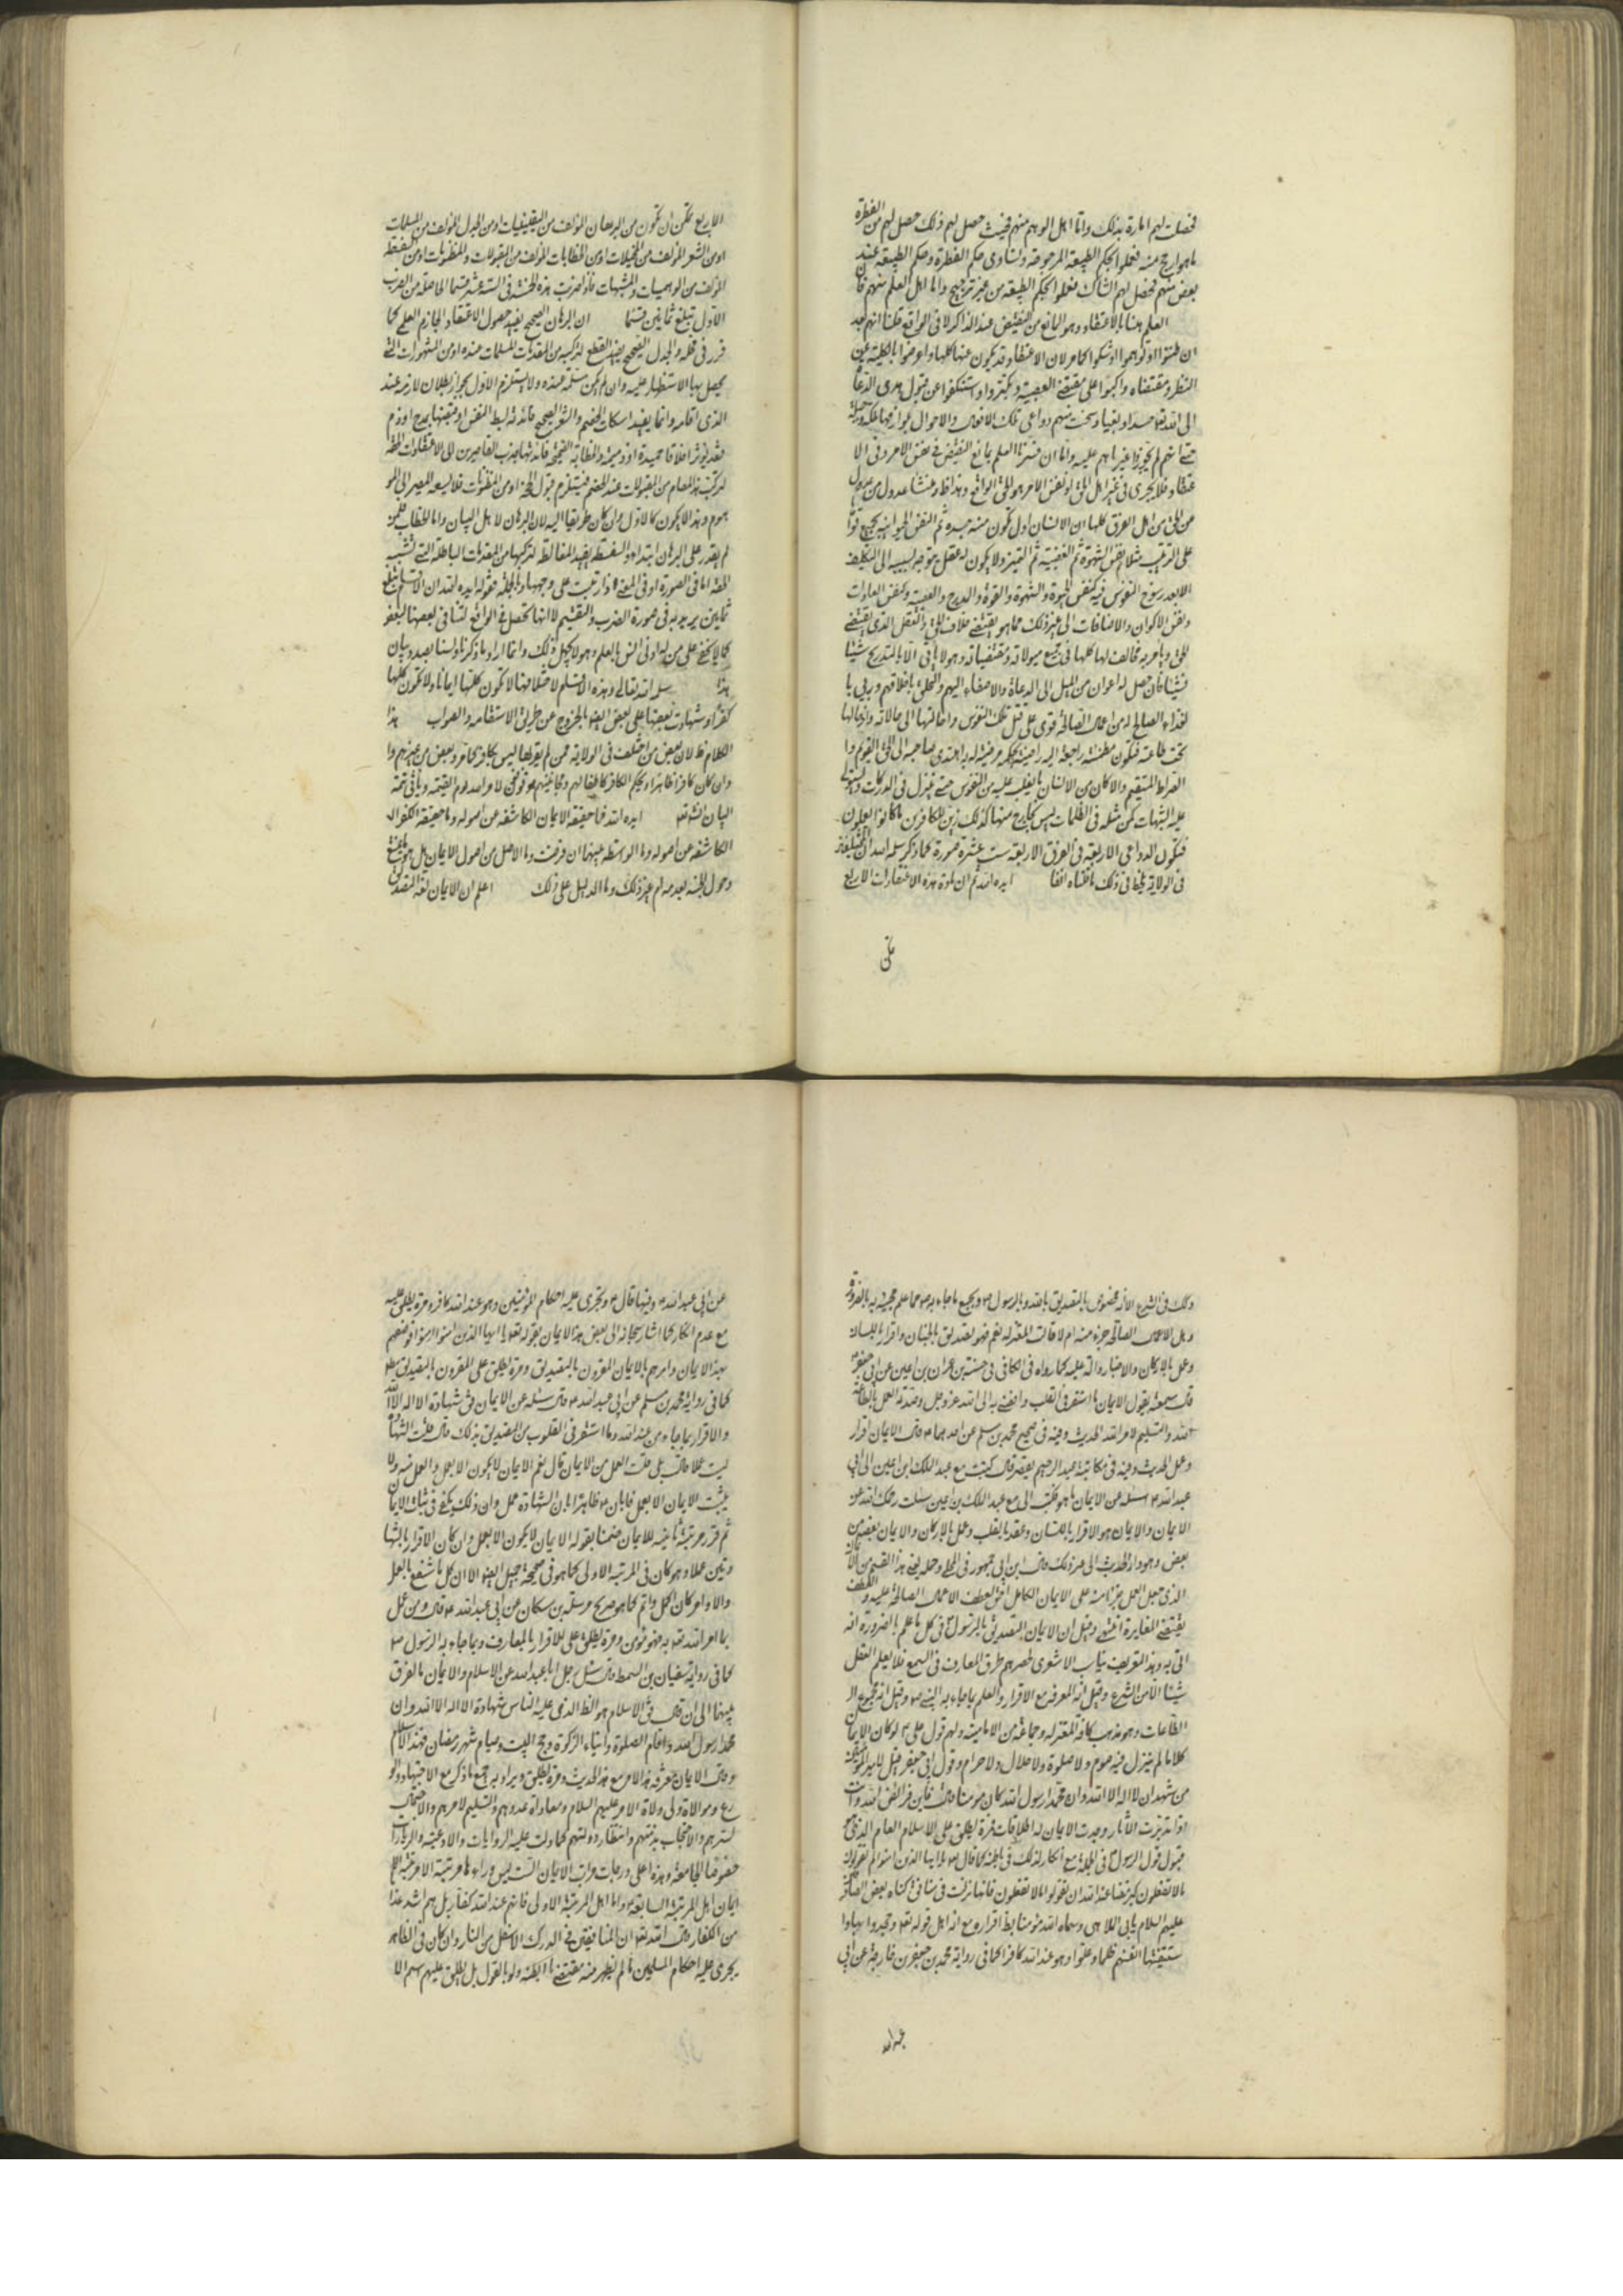 فحصلت لهم امارة بذلك واما اهل الوهم منهم فحيث حصل لهم ذلك حصل لهم من الفطرة
ما هو ارجح منه فعملوا بحكم الطبيعة المرجوحة وتساوى حكم الفطرة وحكم الطبيعة عند
بعض منهم فحصل لهم الشك فعملوا بحكم الطبيعة من غير ترجيح واما اهل العلم منهم فان
العلم هنا بالاعتقاد وهو المانع من النقيض عند الذاكر لا فى الواقع قلنا انهم بعد
ان ظنوا او توهموا او شكوا كما مر لان الاعتقاد قد يكون عنها كلها واعرضوا بالكلية عن
النظر ومقتضاه واكبوا على مقتضى العصبية وتكبروا واستنكفوا عن قبول هدى الدعاة
الى الله تعالى حسدا وبغيا رسخت منهم دواعى تلك الافعال والاحوال
حتى انهم لم يجوزوا غير ما هم عليه واما ان فسرنا العلم بمانع النقيض فى نفس الامر وفى الا
عتقاد فلا يجرى فى غير اهل الحق اذ نفس الامر هو الحق الواقع وهذا ظاهر ومنشا عدول من عدل
عن الحق من اهل الفرق كلها ان الانسان اول تكون منه جسده ثم النفس الحيوانية بجميع قواها
على الترتيب مثلا نفس الشهوة ثم الغضبية ثم التميز ولا يكون له عقل يتوجه بسببه الى التكليف
الا بعد رسوخ النفوس فيه كنفس الحيوة والشهوة والقوة والمدرج والغضبية وكنفس العادات
ونفس الاكوان والاضافات الى غير ذلك مما هو يقتضى خلاف الحق والعقل الذى يقتضى
الحق ويامر به مخالف لها كلها فى جميع ميولاته ومقتضياته وهو لا ياتى الا بالتدريج شيئا
فشيئا فان حصل له اعوان من الميل الى الدعاة والاصغاء اليهم والتخلق باخلاقهم وربى با
لغذاء الصالح له من اعمال الصالحة قوى على قتل تلك النفوس وامالتها الى حالاته وادخالها
تحت طاعته فتكون مطمئنة راجعة اليه راضية بحكمه مرضية له به اهتدى صاحبه الى الحق القويم وا
لصراط المستقيم والا كان من الانسان ما يغلب عليه من النفوس حتى ينزل فى الدركات وتستولى
عليه الشبهات كمن مثله فى الظلمات ليس بخارج منها كذلك زين للكافرين ما كانوا يعملون
فتكون الدواعى الاربعة فى الفرق الاربعة ست عشرة صورة كما ذكر سلمه الله ان المختلفة
فى الولاية يلحقها فى ذلك ما قلناه انفا ايده الله ثم ان مادة هذه الاعتقادات الاربع
يمكن
الاربع يمكن ان تكون من البرهان المؤلف من اليقينيات او من الجدل المؤلف من المسلمات
او من الشعر المؤلف من المخيلات او من الخطابات المؤلف من المقبولات والمظنونات او من السفسطة
المؤلف من الوهميات والمشبهات فاذا ضربت هذه الخمسة فى الستة عشر قسما الحاصلة من الضرب
الاول تبلغ ثمانين قسما ان البرهان الصحيح يفيد حصول الاعتقاد الجازم العلمى كما
قرر فى محله والجدل الصحيح يفيد القطع لتركبه من المقدمات المسلمات عنده او من المشهورات التى
يحصل بها الاستظهار عليه وان لم يكن مسلمة عنده ولا يستلزم الاول بجواز بطلان لازمه عند
الذى اقامه وانما يفيد اسكات الخصم والشعر الصحيح فائدته بسط النفس او قبضها بمدح او ذم
فقد يؤثر اخلاقا حميدة او ذميمة والخطابة الصحيحة فائدتها جذب القاصرين الى الاعتقادات الحقة
لتركبه هذا المقام من المقبولات عند الخصم فيستلزم قبول الحق او من المظنونات فلا يسعه المصير الى المو
هوم وهذا لا يكون كالاول وان كان طريقا اليه لان البرهان لاهل البيان واما الخطاب فلمن
لم يقدر على البرهان ابتداء والسفسطة يفيد المغالطة لتركبها من المقدمات الباطلة التى تشبه
الحقة اما فى الصورة او فى المعنى واذا رتبت على وجهها وبالجملة فقوله ايده الله ان الاقسام تبلغ
ثمانين يريد به فى صورة الضرب والتقسيم لا انها تحصل فى الواقع لتنافى بعضها لبعض
كما لا يخفى على من له ادنى انس بالعلم وهو لا يجهل ذلك وانما اراد ما ذكرنا ولسنا بصدد بيان
هذا سلمه الله تعالى وهذه الاقسام لاختلافها لا تكون كلها ايمانا ولا تكون كلها
كفرا وشهادت بعضها على بعض ايضا بالخروج عن طريق الاستقامة والصواب هذا
الكلام ظ لان بعض من اختلف فى الولاية ممن لم يقر بها ليس بكافر كما مر وبعض من غيرهم وا
وان كان كافرا ظاهرا ويحكم الكافر كاطفالهم ومجانينهم هو موقوف لامر الله يوم القيمة وياتى تتمة
البيان انشاء الله ايده الله فما حقيقة الايمان الكاشفة عن اصوله وما حقيقة الكفر ال
الكاشفة عن اصوله وما الواسطة بينهما ان فرضت وما الاصل من اصول الايمان بل هو
دخول الجنة بعدمه ام غير ذلك وما الدليل على ذلك اعلم ان الايمان لغة التصديق
وذلك فى الشرع الا انه مخصوص بالتصديق بالله وبالرسول ص وبجميع ما جاء به ص مما علم مجيئه به بالضرورة
وهل الاعمال الصالحة جزء منه ام لا قالت المعتزلة نعم فهو تصديق بالجنان واقرار باللسان
وعمل بالاركان والاخبار دالة عليه كما رواه فى الكافى فى حسنة بن حمران بن اعين عن ابى جعفر ع
قال سمعته يقول الايمان ما استقر فى القلب وافضى به الى الله عز وجل وصدقه العمل بالطاعة
لله والتسليم لامر الله الحديث وفيه فى صحيح محمد بن مسلم عن احدهما ع قال الايمان اقرار
وعمل الحديث وفيه فى مكاتبة عبد الرحيم القصير قال كتبت مع عبد الملك بن اعين الى ابى
عبد الله ع اسئله عن الايمان ما هو فكتب الى مع عبد الملك بن اعين سئلت رحمك الله عن
الايمان والايمان هو الاقرار باللسان وعقد بالقلب وعمل بالاركان والايمان بعضه من
بعض وهو دار الحديث الى غير ذلك قال ابن ابى جمهور فى المجلى وحمله يعنى هذا القسم من الا
الذى جعل العمل جزءا منه على الايمان الكامل اذ عطف الاعمال الصالحة عليه والعطف
يقتضى المغايرة انتهى وقيل ان الايمان التصديق بالرسول ص فى كل ما علم بالضرورة انه
اتى به وهذا التعريف يناسب الاشعرى لحصرهم طرق المعارف فى السمع فلا يعلم العقل
شيئا الا من الشرع وقيل انه المعرفة مع الاقرار والعلم بما جاء به النبى ص وقيل انه مجموع ال
الطاعات وهو مذهب كافة المعتزلة وجماعة من الامامية ولهم قول على ع لو كان الايمان
كلاما لم ينزل فيه صوم ولا صلوة ولا حلال ولا حرام وقول ابى جعفر ع قيل لامير المؤمنين
من شهد ان لا اله الا الله وان محمدا رسول الله كان مؤمنا قال فاين فرائض الله وانت
اذا تدبرت الاثار وجدت الايمان له اطلاقات فمرة يطلق على الاسلام العام الذى هو
قبول قول الرسول ص فى الجملة مع انكار لذلك فى باطنه كما قال ع يا ايها الذين امنوا لم تقولون
ما لا تفعلون كبر مقتا عند الله ان تقولوا ما لا تفعلون فانها نزلت فى
عليهم السلام وسماه الله مؤمنا بظاهر اقراره مع انه اهل قوله تعالى وجحدوا بها وا
ستيقنتها انفسهم ظلما وعلوا وهو عند الله كافر كما فى رواية محمد بن جعفر بن خارجة عن ابى
عبد الله
عن ابى عبد الله ع وفيها قال ع وتجرى عليه احكام المؤمنين وهو عند الله كافر ومرة يطلق عليه
مع عدم انكار كما اشار سبحانه الى بعض هذا الايمان بقوله تعالى يا ايها الذين امنوا امنوا فوصفهم
بهذا الايمان وامرهم بالايمان المقرون بالتصديق ومرة يطلق على المقرون بالتصديق
كما فى رواية محمد بن مسلم عن ابى عبد الله ع قال سئلته عن الايمان فقال شهادة ان لا اله الا الله
والاقرار بما جاء من عند الله وما استقر فى القلوب من التصديق بذلك قال قلت الشهادة
ليست عملا قال بلى قلت العمل من الايمان قال نعم الايمان لا يكون الا بعمل والعمل منه ولا
يثبت الايمان الا بعمل فابان ع ظاهرا بان الشهادة عمل وان ذلك يكفى فى ثبات الايمان
ثم قرر مرتبة ثانية للايمان ضمنا بقوله الايمان لا يكون الا بعمل وان كان الاقرار بالشها
دتين عملا وهو كاف فى المرتبة الاولى كما هو فى صحيحة جميل ايضا الا ان كل ما شفع بالعمل
والاوامر كان اكمل واتم كما هو صريح مرسلة بن مسكان عن ابى عبد الله ع قال ومن عمل
بما امر الله به فهو مؤمن ومرة يطلق على الاقرار بالمعارف وبما جاء به الرسول ص
كما فى رواية سفيان بن السمط قال سئل رجل ابا عبد الله عن الاسلام والايمان ما الفرق
بينهما الى ان قال فقال الاسلام هو الظاهر الذى عليه الناس شهادة ان لا اله الا الله وان
محمدا رسول الله واقام الصلوة وايتاء الزكوة وحج البيت وصيام شهر رمضان فهذا الاسلام
وقال الايمان معرفة هذا الامر مع هذا الحديث ومرة يطلق ويراد به جمع ما ذكر مع الاجتهاد والو
رع وموالاة ولى ولاة الامر عليهم السلام ومعاداة عدوهم والتسليم لامرهم والاحتمال
لسرهم والاحتجاب بذمتهم وانتظار دولتهم كما دلت عليه الروايات والادعية والزيارات
خصوصا الجامعة وهذه اعلى درجات مراتب الايمان التى ليس وراءها مرتبة الا مرتبة
ايمان اهل المرتبة السابقة واما اهل المرتبة الاولى فانهم عند الله كفار بل هم اشد عذابا
من الكفار وقال الله تعالى ان المنافقين فى الدرك الاسفل من النار وان كان فى الظاهر
يجرى عليه احكام المسلمين ما لم يظهر منه مقتضى ما ابطنه ولو بالقول بل يطلق عليهم اسم الا